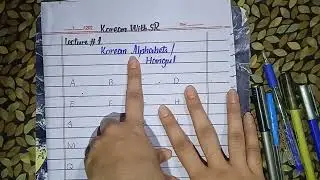 Korean With SR
Lecture # 1
Korean Alphabets /
Hangul
A B D
E F H
M
Q